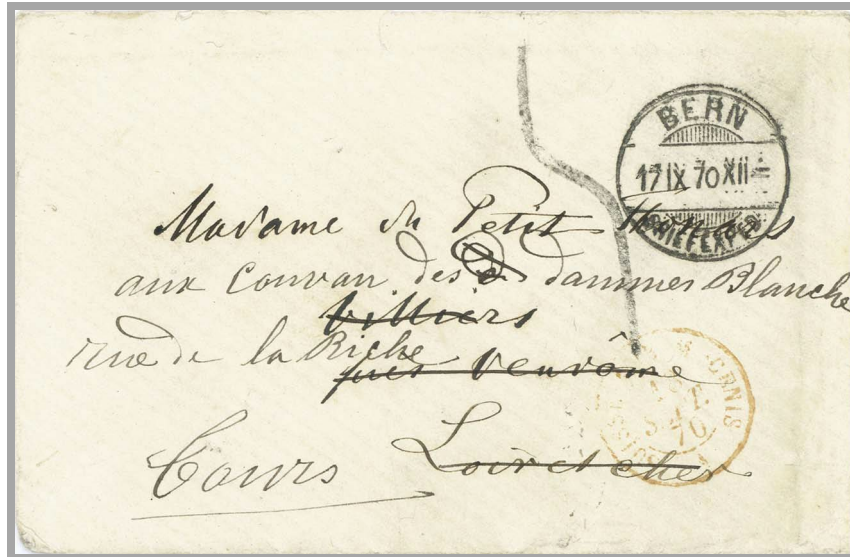 BERN
17 IX 70 XII
BRIEFEXP.
Madame du Petit Thouars
aux Convan des dammes Blanche
Villiers
rue de la Riche
près Vendôme
Tours
Loir et cher
CENIS
SEPT.
70